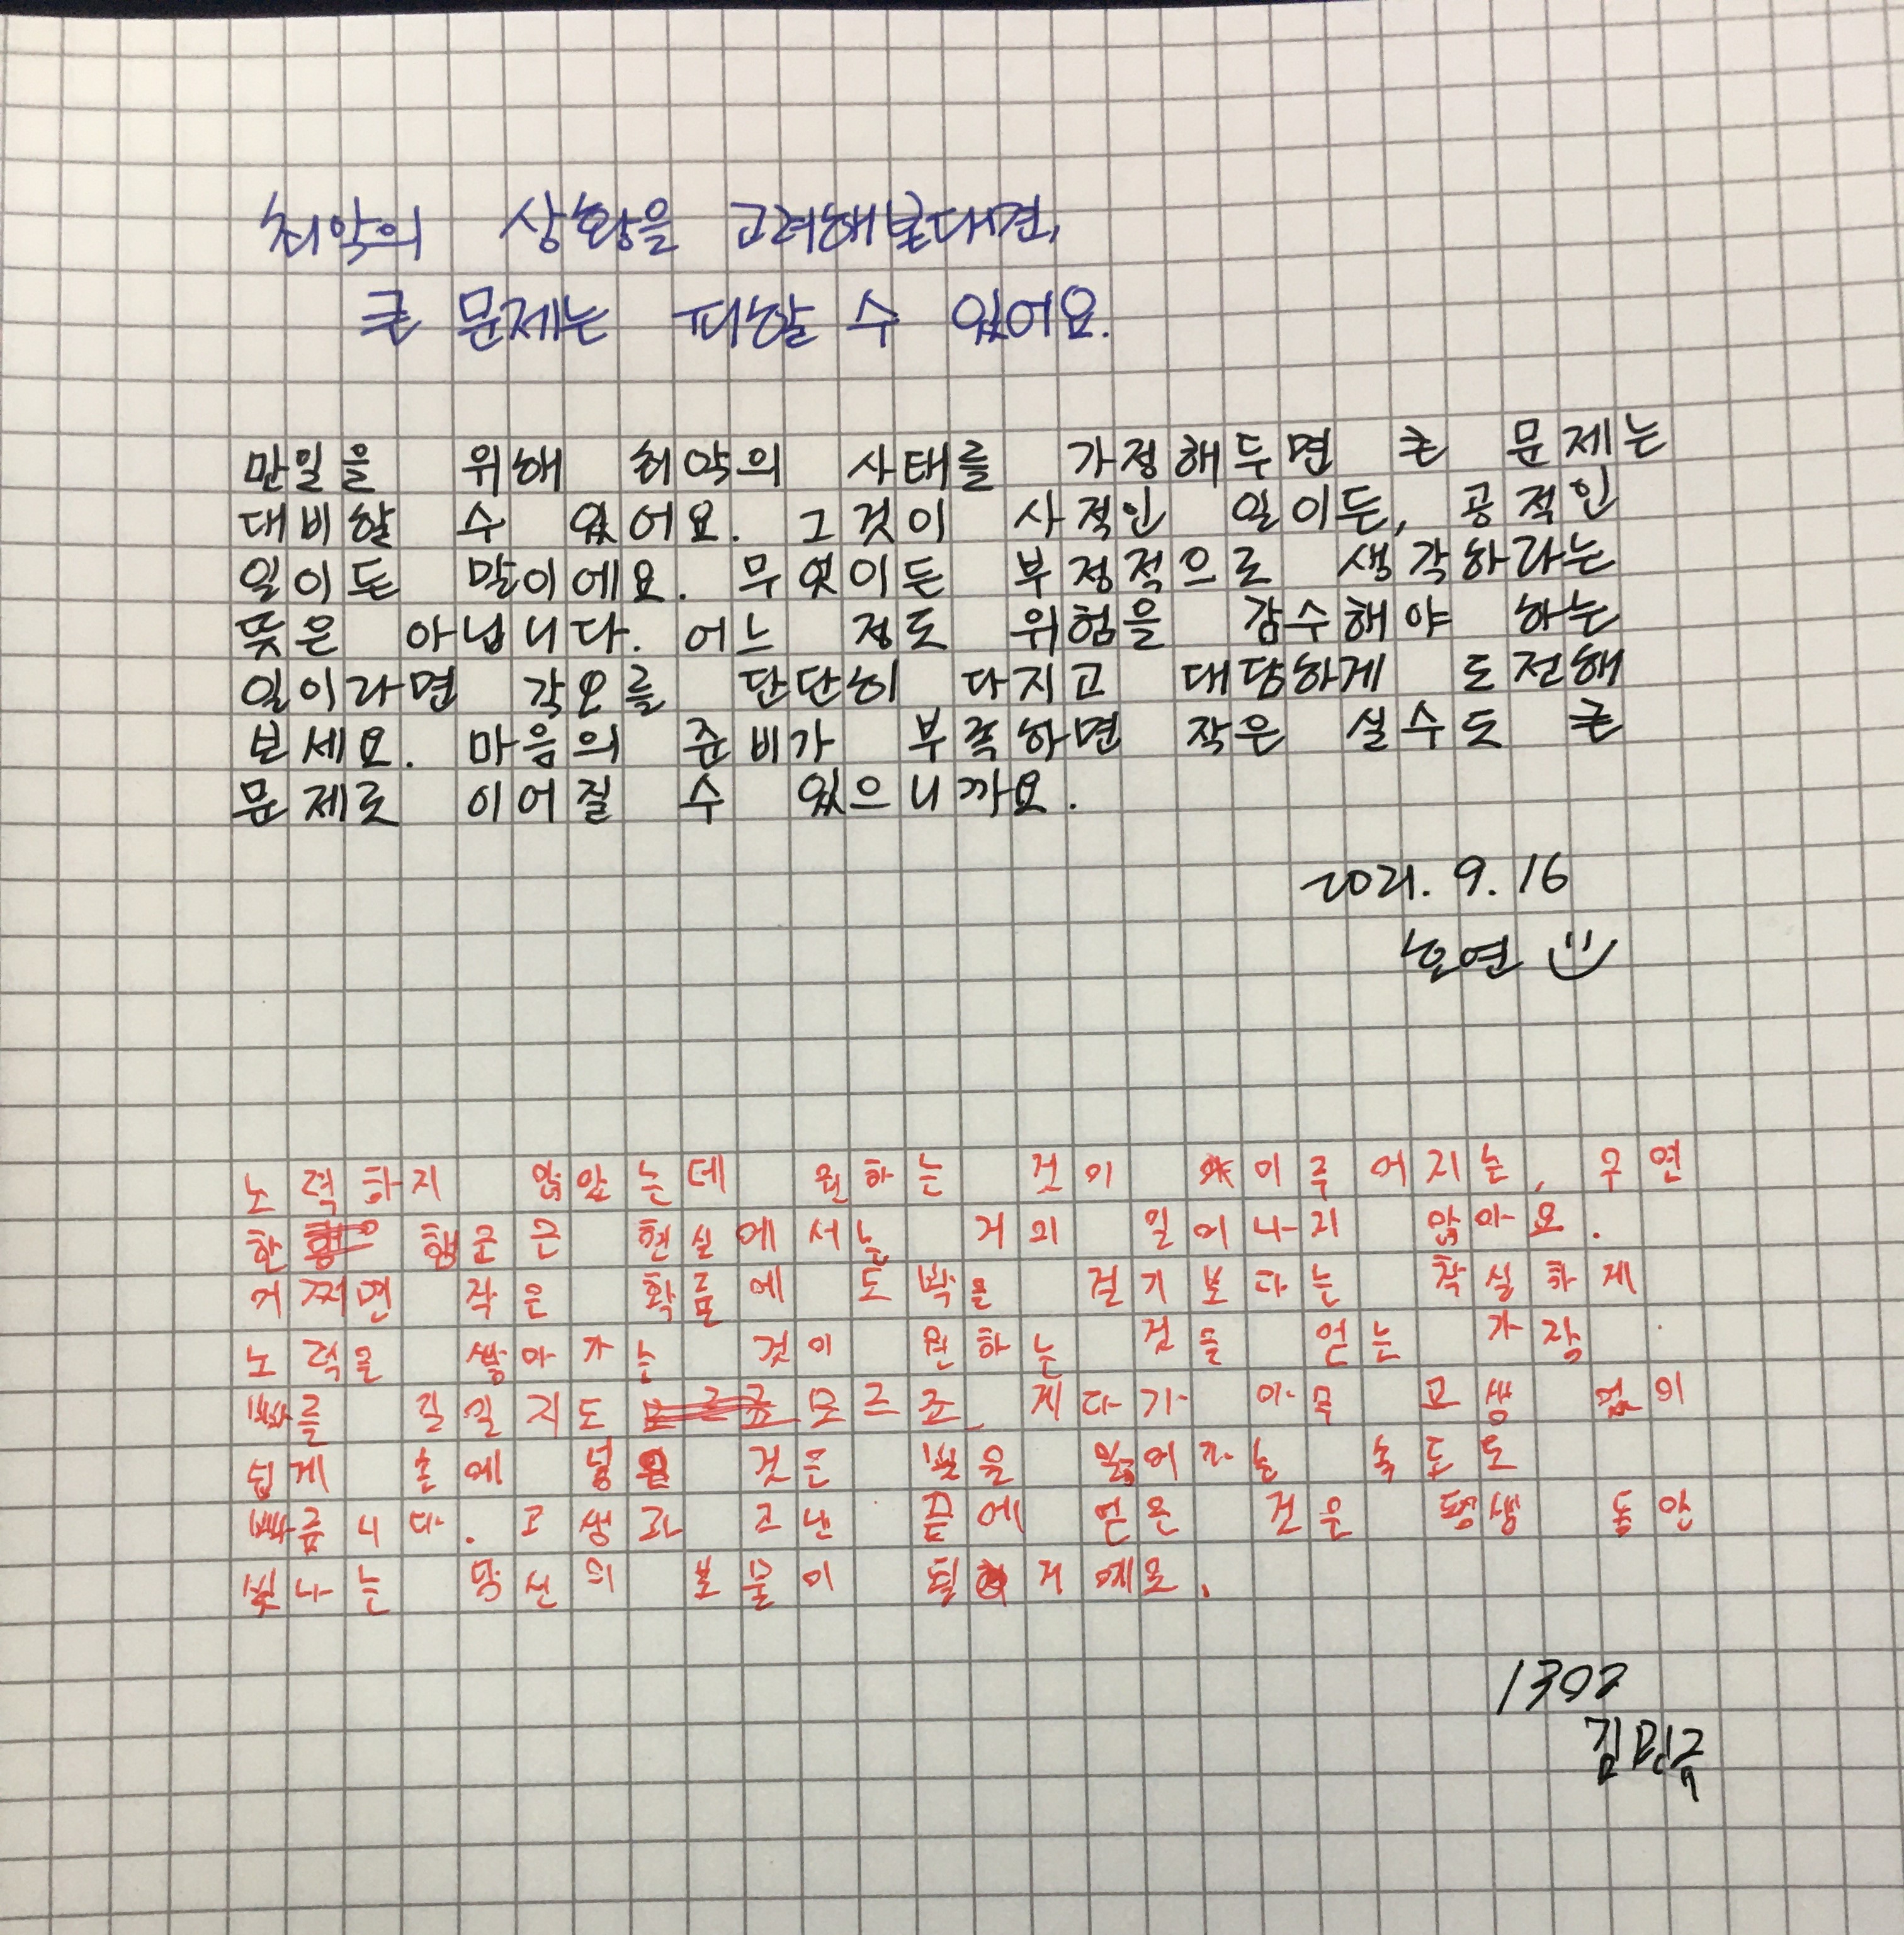 최악의 상황을 고려해본다면,
큰 문제는 피할 수 있어요.
만일을 위해 최악의 사태를 가정해두면 큰 문제는
대비할 수 있어요. 그것이 사적인 일이든, 공적인
일이든 말이에요. 무엇이든 부정적으로 생각하라는
뜻은 아닙니다. 어느 정도 위험을 감수해야 하는
일이라면 각오를 단단히 다지고 대담하게 도전해
보세요. 마음의 준비가 부족하면 작은 실수도 큰
문제로 이어질 수 있으니까요.
2021. 9. 16
호연
노력하지 않았는데 원하는 것이 이루어지는, 우연
한 행운은 현실에서는 거의 일어나지 않아요.
어쩌면 작은 확률에 도박을 걸기보다는 착실하게
노력을 쌓아가는 것이 원하는 것을 얻는 가장
빠를 길일지도 모르죠. 게다가 아무 고생 없이
쉽게 손에 넣은 것은 빛을 잃어가는 속도도
빠릅니다. 고생과 고난 끝에 얻은 것은 평생 동안
빛나는 당신의 보물이 될 거예요.
1302
김민규